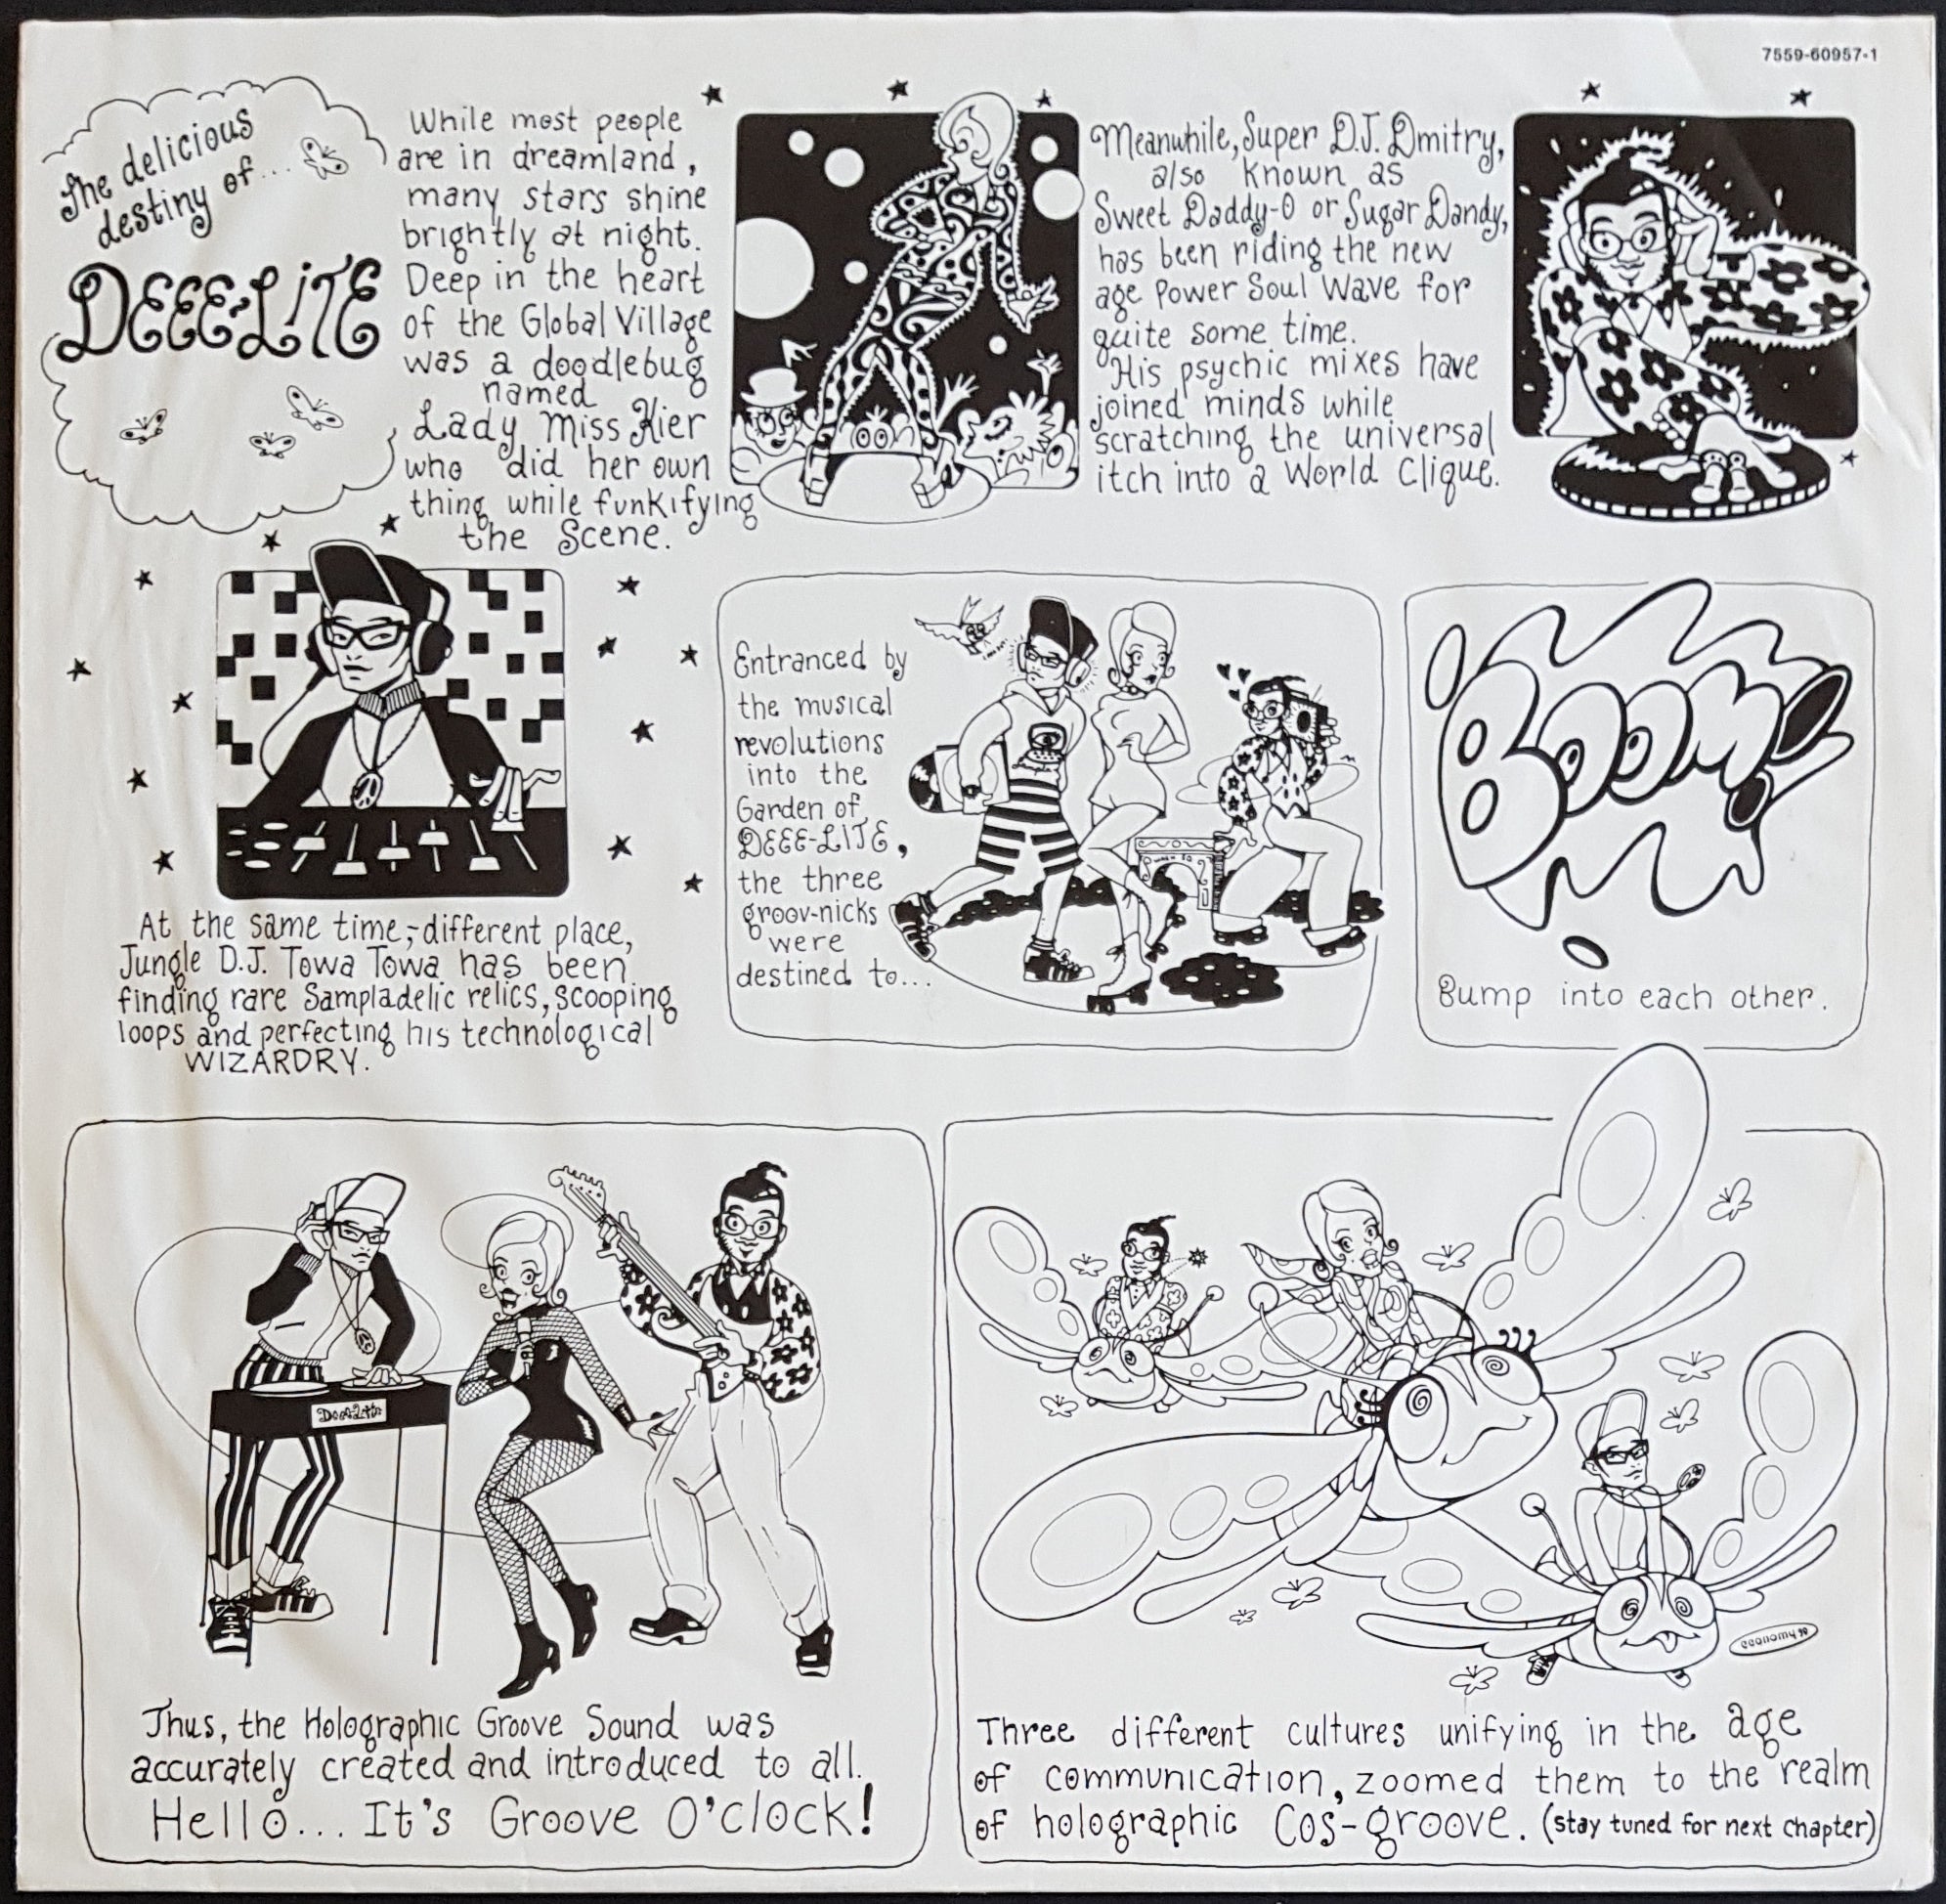 7559-60957-1
The delicious
destiny of...
DEEE-LiTE
While most people
are in dreamland,
many stars shine
brightly at night.
Deep in the heart
of the Global Village
was a doodlebug
named
Lady Miss Kier
who did her own
thing while funkifying
the Scene.
Meanwhile, Super D.J. Dmitry,
also known as
Sweet Daddy-O or Sugar Dandy,
has been riding the new
age Power Soul Wave for
quite some time.
His psychic mixes have
joined minds while
scratching the universal
itch into a World Clique.
At the same time,-different place,
Jungle D.J. Towa Towa has been
finding rare Sampladelic relics, scooping
loops and perfecting his technological
WIZARDRY.
Entranced by
the musical
revolutions
into the
Garden of
DEEE-LITE,
the three
groov-nicks
were
destined to...
BOOM!
Bump into each other.
Deee-Lite
Thus, the Holographic Groove Sound was
accurately created and introduced to all.
Hello... It's Groove O'clock!
economy 90
Three different cultures unifying in the age
of communication, zoomed them to the realm
of holographic Cos-groove. (stay tuned for next chapter)